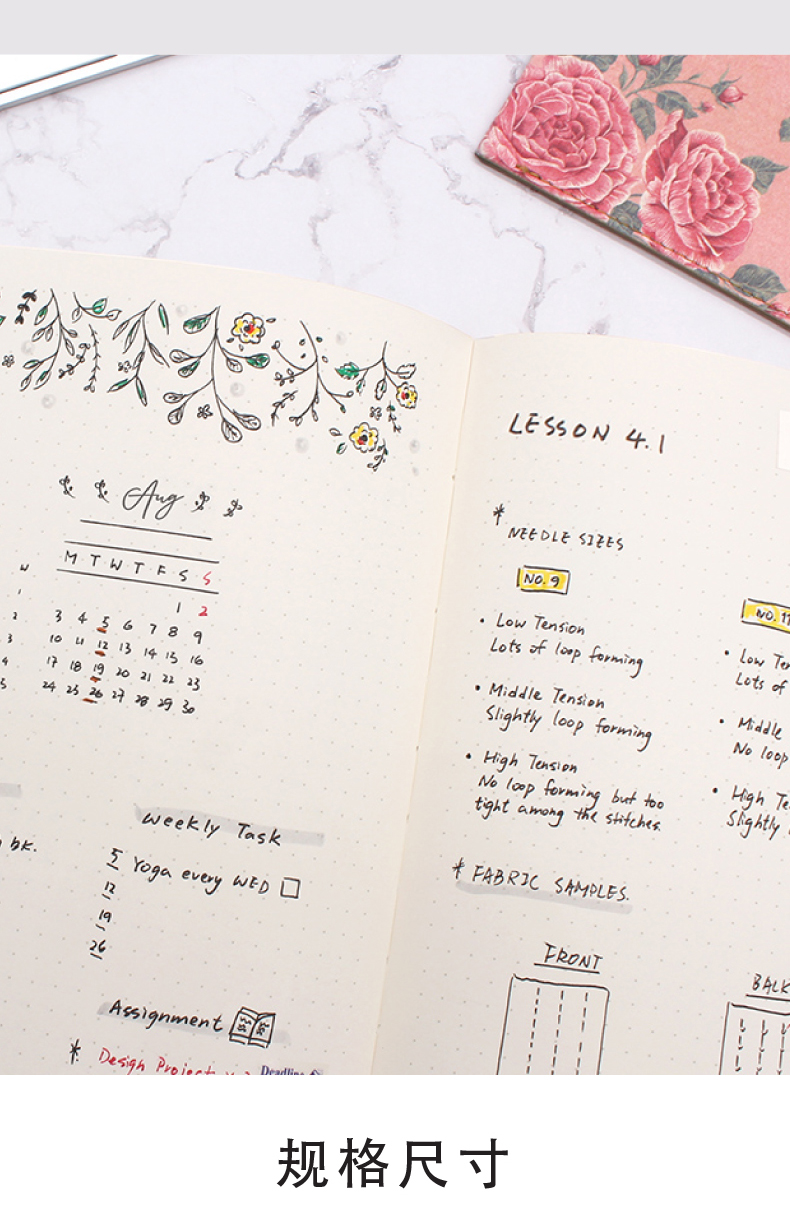 Aug
M T W T F S S
1 2
3 4 5 6 7 8 9
10 11 12 13 14 15 16
17 18 19 20 21 22 23
24 25 26 27 28 29 30
W
1
2
3
4
5
bk.
Weekly Task
5 Yoga every WED
12
19
26
Assignment
* Design Project
Deadline
LESSON 4.1
* NEEDLE SIZES
NO. 9
• Low Tension
Lots of loop forming
• Middle Tension
Slightly loop forming
• High Tension
No loop forming but too
tight among the stitches.
NO. 11
• Low
Lots of
• Middle
No loop
• High
Slightly
* FABRIC SAMPLES.
FRONT
规格尺寸